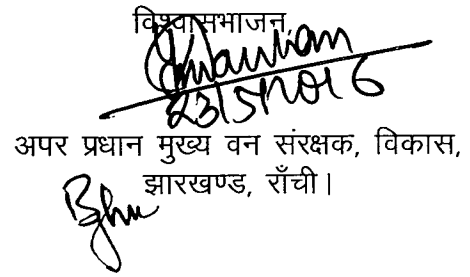 विश्वासभाजन
23/5/2016
अपर प्रधान मुख्य वन संरक्षक, विकास,
झारखण्ड, राँची।